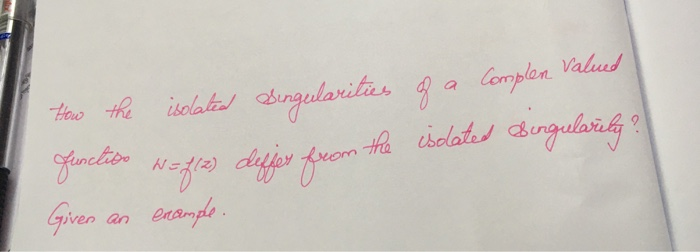 How the isolated singularities of a Complex Valued
function W=f(z) differ from the isolated singularity?
Given an example.